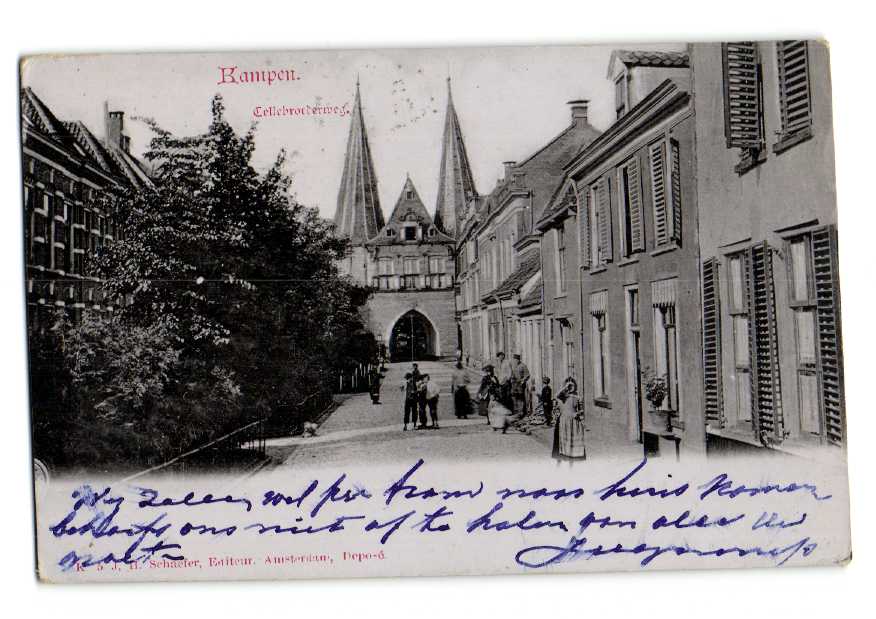 Kampen.
Cellebroederweg.
Wy zullen wel per tram naar huis komen
behoeft ons niet af te halen van alex uw
groet
K 5 J. H. Schaefer, Editeur. Amsterdam, Depo-é.